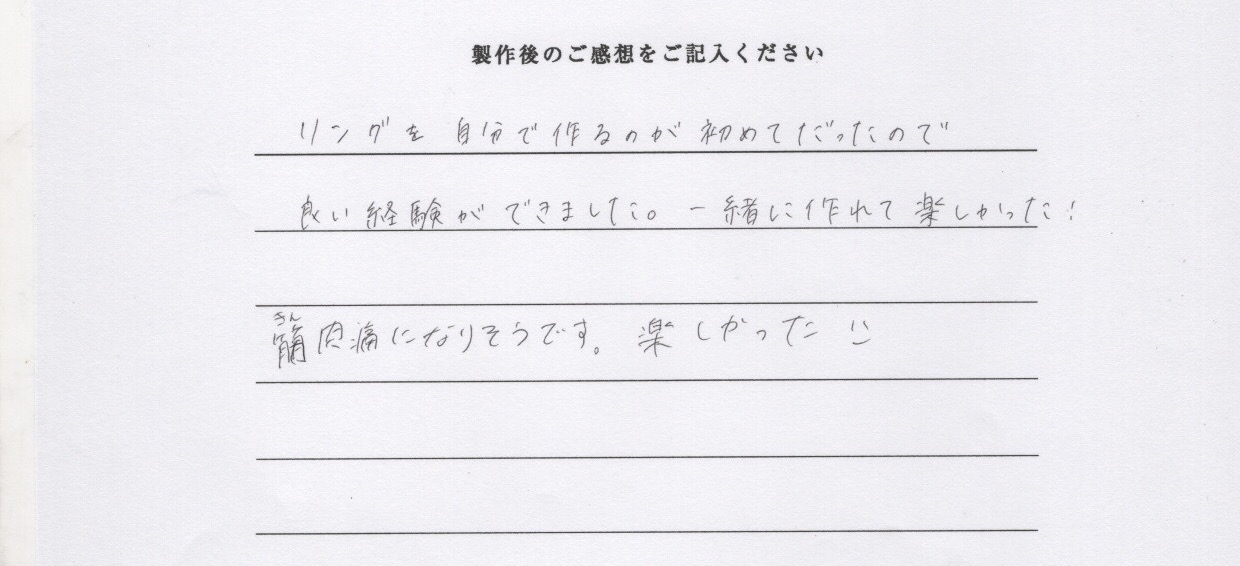 製作後のご感想をご記入ください
リングを 自分で作るのが 初めてだったので
良い経験ができました。一緒に作れて楽しかった!
きん
筋肉痛になりそうです。楽しかった